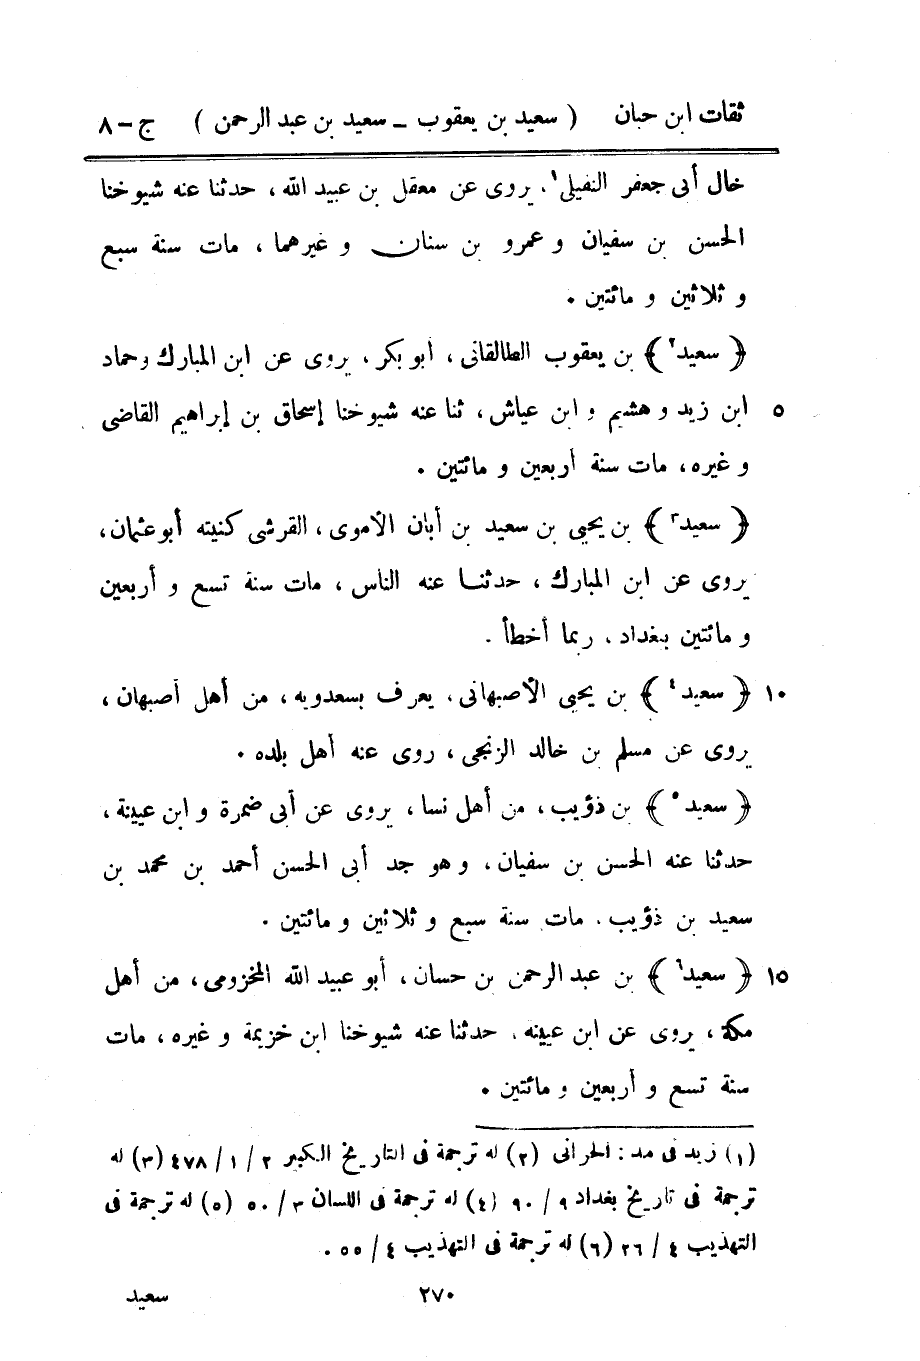 ثقات ابن حبان ( سعيد بن يعقوب ــ سعيد بن عبد الرحمن ) ج – ٨
خال أبى جعفر النفيلى١، يروى عن معقل بن عبيد الله، حدثنا عنه شيوخنا
الحسن بن سفيان و عمرو بن سنان و غيرهما، مات سنة سبع
و ثلاثين و مائتين .
﴿ سعيد٢ ﴾ بن يعقوب الطالقانى، أبو بكر، يروى عن ابن المبارك وحماد
٥ ابن زيد و هشيم و ابن عياش، ثنا عنه شيوخنا إسحاق بن إبراهيم القاضى
و غيره، مات سنة أربعين و مائتين .
﴿ سعيد٣ ﴾ بن يحيى بن سعيد بن أبان الأموى، القرشى كنيته أبو عثمان،
يروى عن ابن المبارك، حدثنا عنه الناس، مات سنة تسع و أربعين
و مائتين ببغداد، ربما أخطأ .
١٠ ﴿ سعيد٤ ﴾ بن يحيى الأصبهانى، يعرف بسعدويه، من أهل أصبهان،
يروى عن مسلم بن خالد الزنجى، روى عنه أهل بلده .
﴿ سعيد٥ ﴾ بن ذؤيب، من أهل نسا، يروى عن أبى ضمرة و ابن عيينة،
حدثنا عنه الحسن بن سفيان، و هو جد أبى الحسن أحمد بن محمد بن
سعيد بن ذؤيب، مات سنة سبع و ثلاثين و مائتين .
١٥ ﴿ سعيد٦ ﴾ بن عبد الرحمن بن حسان، أبو عبيد الله المخزومى، من أهل
مكة، يروى عن ابن عيينه، حدثنا عنه شيوخنا ابن خزيمة و غيره، مات
سنة تسع و أربعين و مائتين .
(١) زيد فى مد : الحرانى (٢) له ترجمة فى التاريخ الكبير ٢ / ١ / ٤٧٨ (٣) له
ترجمة فى تاريخ بغداد ٩ / ٩٠ (٤) له ترجمة فى اللسان ٣ / ٥٠ (٥) له ترجمة فى
التهذيب ٤ / ٢٦ (٦) له ترجمة فى التهذيب ٤ / ٥٥ .
٢٧٠ سعيد